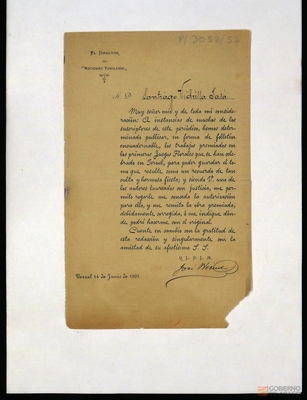 EL DIRECTOR
DE
"MISCELÁNEA TUROLENSE"
S. D. Santiago Vidiella Jasa
Muy señor mío y de toda mi conside-
ración: A instancias de muchos de los
suscriptores de este periódico, hemos deter-
minado publicar, en forma de folletín
encuadernable, los trabajos premiados en
los primeros Juegos Florales que se han cele-
brado en Teruel, para poder guardar el to-
mo que resulte, como un recuerdo de tan
culta y hermosa fiesta; y siendo V. uno de
los autores laureados con justicia, me per-
mito rogarle me conceda la autorización
para ello, y me remita la obra premiada,
debidamente corregida, ó me indique dón-
de podré hacerme con el original.
Cuente en cambio con la gratitud de
esta redacción y singularmente con la
amistad de su afectísimo S. S.
Q. B. S. M.
Teruel 14 de Junio de 1891.
GOBIERNO